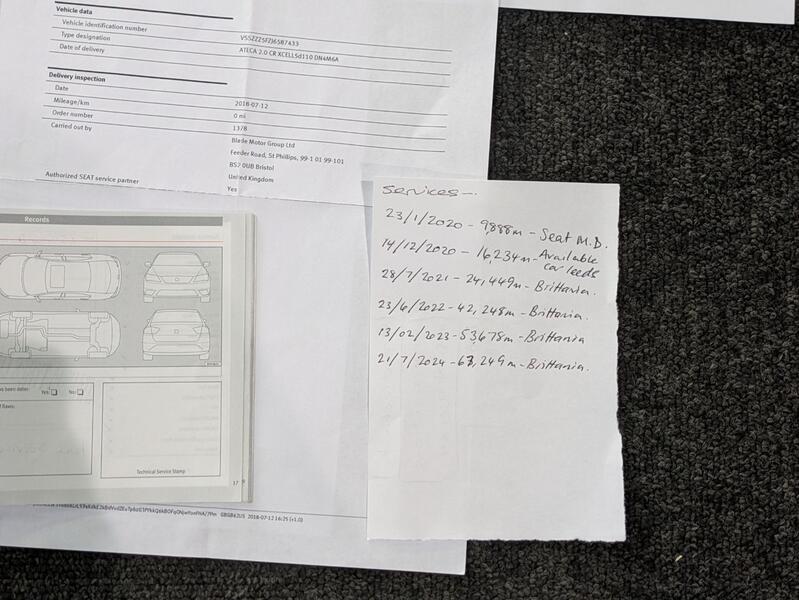 Vehicle data
Vehicle identification number
VSSZZZ5FZJ6587433
Type designation
ATECA 2.0 CR XCELLSd110 DN4M6A
Date of delivery
Delivery inspection
Date
2018-07-12
Mileage/km
0 mi
Order number
1378
Carried out by
Blade Motor Group Ltd
Feeder Road, St Phillips, 99-1 01 99-101
BS2 0UB Bristol
United Kingdom
Authorized SEAT service partner
Yes
Services-
23/1/2020 - 9,888m - Seat M.D.
14/12/2020 - 16,234m - Available
car leeds
28/7/2021 - 24,449m - Brittania.
23/6/2022 - 42,248m - Brittania.
13/02/2023 - 53,678m - Brittania
21/7/2024 - 63,249m - Brittania.
Records
Yes: No:
Technical Service Stamp
17
2018-07-12 16:25 (v1.0)